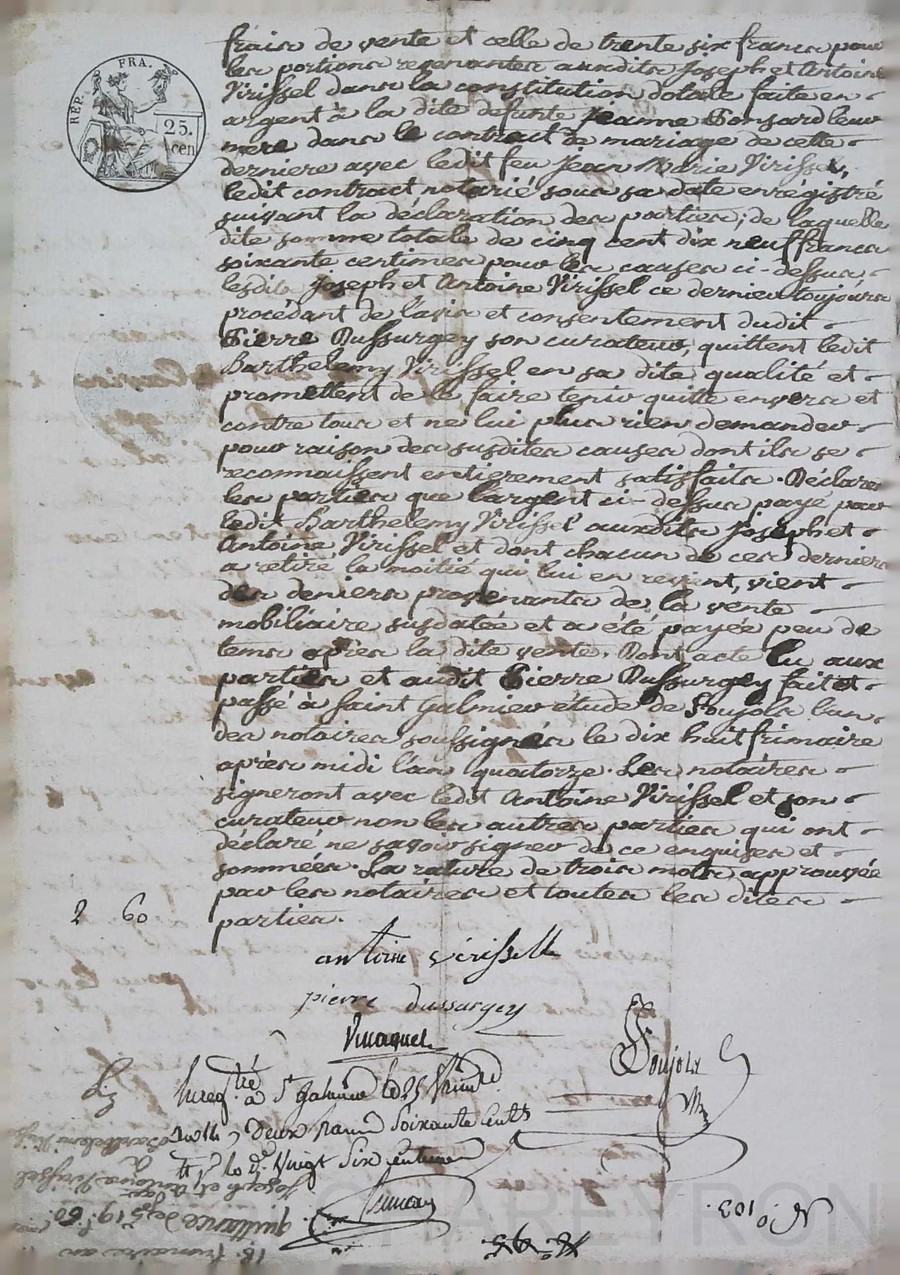 RÉP. FRA.
25.
cen
fraix de vente et celle de trente six francs pour
les portions revenantes auxdits Joseph et Antoine
Virissel dans la constitution dotale faite en
argent à la dite défunte Jeanne Ponsard leur
mère dans le contract de mariage de cette
derniere avec ledit feu Jean Marie Virissel,
ledit contract notarié sous sa date enrégistré
suivant la déclaration des parties; de laquelle
dite somme totale de cinq cent dix neuf francs
soixante centimes pour les causes ci-dessus
lesdits Joseph et Antoine Virissel ce dernier toujours
procédant de l'avis et consentement dudit
Pierre Dussurgey son curateur, quittent ledit
Barthelemy Virissel en sa dite qualité et
promettent de le faire tenir quitte envers et
contre tous et ne lui plus rien demander
pour raison des susdites causes dont ils se
reconnaissent entierement satisfaits. Déclarent
les parties que l'argent ci-dessus payé par
ledit Barthelemy Virissel auxdits Joseph et
Antoine Virissel et dont chacun de ces derniers
a retiré la moitié qui lui en revient, vient
des deniers provenants de la vente
mobiliaire susdatée et a été payée peu de
tems après la dite vente. Dont acte lu aux
parties et audit Pierre Dussurgey fait et
passé à Saint Galmier étude de Soujols l'un
des notaires soussignés le dix huit frimaire
après midi l'an quatorze. Les notaires
signeront avec ledit Antoine Virissel et son
curateur non les autres parties qui ont
déclaré ne savoir signer de ce enquises et
sommées. La rature de trois mots approuvée
par les notaires et toutes les dites
parties.
2 60
antoine verisselle
pierre dussurgey
Soujols
Enregtré à St Galmier le 25 frimre
deux francs soixante cents
vingt six centimes
No 103.
18 frimaire an
quittance de 519 f. 60
par
Joseph et Antoine Virissel
à
Barthelemi
CHAREYRON